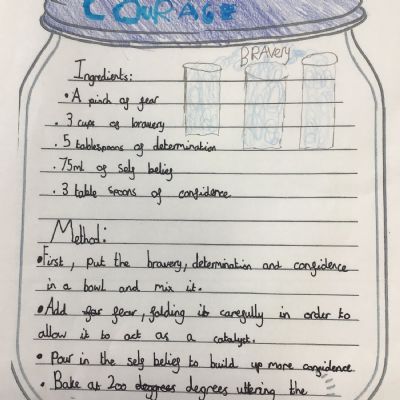 COURAGE
BRAVery
Ingredients:
• A pinch of fear
. 3 cups of bravery
. 5 tablespoons of determination
. 75ml of self belief
. 3 table spoons of confidence
Method:
•First, put the bravery, determination and confidence
in a bowl and mix it.
•Add fear, folding it carefully in order to
allow it to act as a catalyst.
• Pour in the self belief to build up more confidence.
• Bake at 200 degrees uttering the